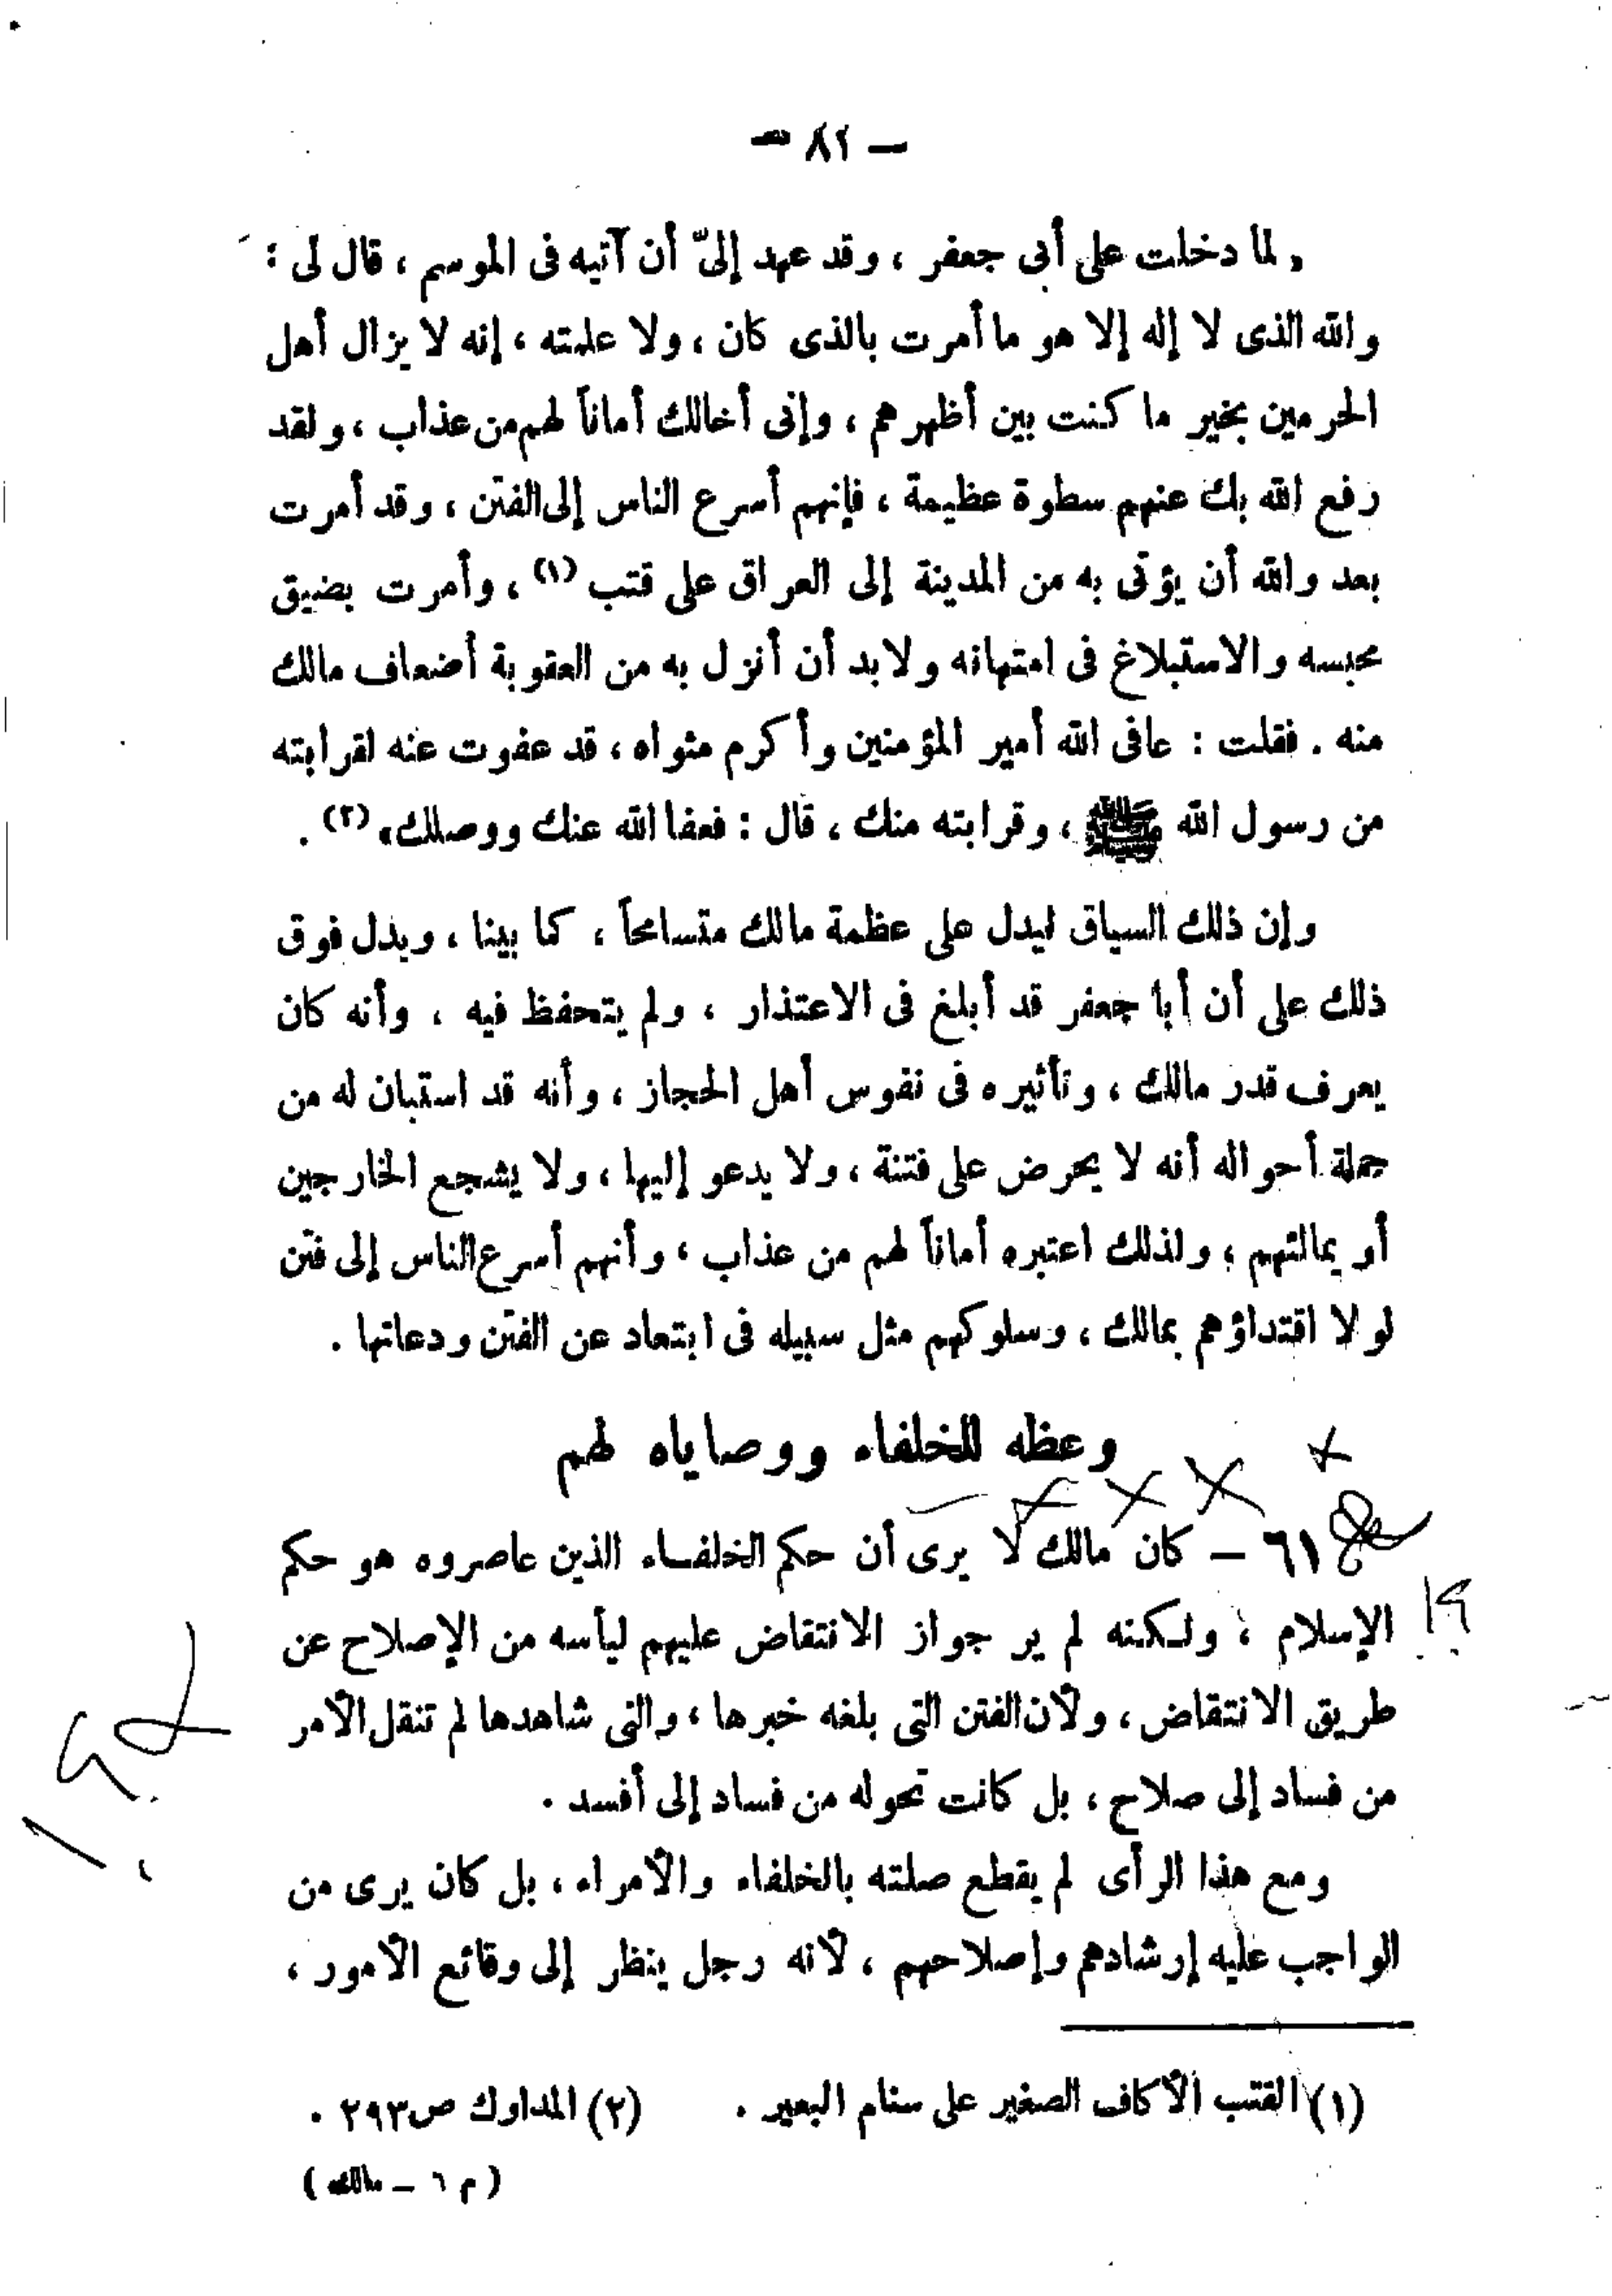 — ٨٢ —
« لما دخلت على أبى جعفر ، وقد عهد إلىّ أن آتيه فى الموسم ، قال لى :
والله الذى لا إله إلا هو ما أمرت بالذى كان ، ولا علمته ، إنه لا يزال أهل
الحرمين بخير ما كنت بين أظهرهم ، وإنى أخالك أماناً لهم من عذاب ، ولقد
رفع الله بك عنهم سطوة عظيمة ، فإنهم أسرع الناس إلى الفتن ، وقد أمرت
بعد والله أن يؤتى به من المدينة إلى العراق على قتب (١) ، وأمرت بضيق
محبسه والاستبلاغ فى امتهانه ولا بد أن أنزل به من العقوبة أضعاف مالك
منه . فقلت : عافى الله أمير المؤمنين وأكرم مثواه ، قد عفوت عنه لقرابته
من رسول الله ﷺ ، وقرابته منك ، قال : فعفا الله عنك ووصلك » (٢) .
وإن ذلك السياق ليدل على عظمة مالك متسامحاً ، كما بينا ، ويدل فوق
ذلك على أن أبا جعفر قد أبلغ فى الاعتذار ، ولم يتحفظ فيه ، وأنه كان
يعرف قدر مالك ، وتأثيره فى نفوس أهل الحجاز ، وأنه قد استبان له من
جملة أحواله أنه لا يحرض على فتنة ، ولا يدعو إليها ، ولا يشجع الخارجين
أو يمالئهم ، ولذلك اعتبره أماناً لهم من عذاب ، وأنهم أسرع الناس إلى فتن
لولا اقتداؤهم بمالك ، وسلوكهم مثل سبيله فى ابتعاد عن الفتن ودعاتها .
وعظه للخلفاء ووصاياه لهم
٦١ — كان مالك لا يرى أن حكم الخلفاء الذين عاصروه هو حكم
الإسلام ، ولكنه لم ير جواز الانتقاض عليهم ليأسه من الإصلاح عن
طريق الانتقاض ، ولأن الفتن التى بلغه خبرها ، والتى شاهدها لم تنقل الأمر
من فساد إلى صلاح ، بل كانت تحوله من فساد إلى أفسد .
ومع هذا الرأى لم يقطع صلته بالخلفاء والأمراء ، بل كان يرى من
الواجب عليه إرشادهم وإصلاحهم ، لأنه رجل ينظر إلى وقائع الأمور ،
(١) القتب الأكاف الصغير على سنام البعير . (٢) المدارك ص٢٩٣ .
( م ٦ — مالك )